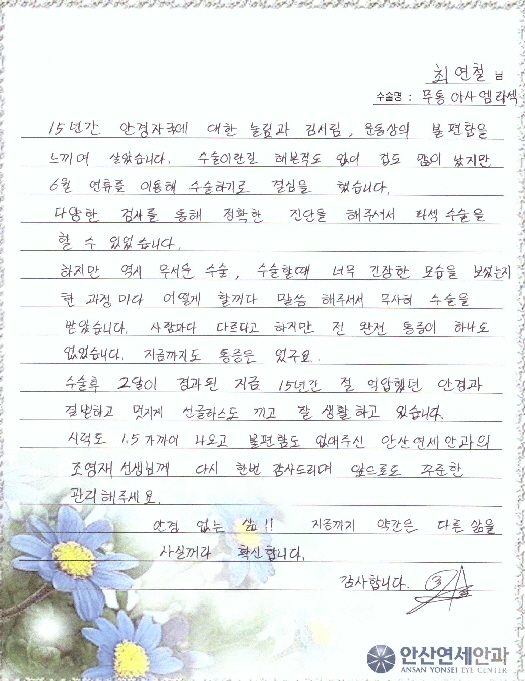 최연철 님
수술명 : 무통 아사 엠라섹
15년간 안경자국에 대한 눌림과 김서림, 운동상의 불편함을
느끼며 살았습니다. 수술이란걸 해본적도 없어 겁도 많이 났지만
6월 연휴를 이용해 수술하기로 결심을 했습니다.
다양한 검사를 통해 정확한 진단을 해주셔서 라섹 수술을
할 수 있었습니다.
하지만 역시 무서운 수술, 수술할때 너무 긴장한 모습을 보였는지
한 과정마다 어떻게 할꺼다 말씀 해주셔서 무사히 수술을
받았습니다. 사람마다 다르다고 하지만 전 완전 통증이 하나도
없었습니다. 지금까지도 통증은 없구요.
수술후 2달이 경과된 지금 15년간 절 억압했던 안경과
결별하고 멋지게 선글라스도 끼고 잘 생활하고 있습니다.
시력도 1.5 가까이 나오고 불편함도 없애주신 안산연세안과의
조영재 선생님께 다시 한번 감사드리며 앞으로도 꾸준한
관리해주세요.
안경 없는 삶!! 지금까지 약간은 다른 삶을
사실꺼라 확신합니다.
감사합니다.
안산연세안과
ANSAN YONSEI EYE CENTER